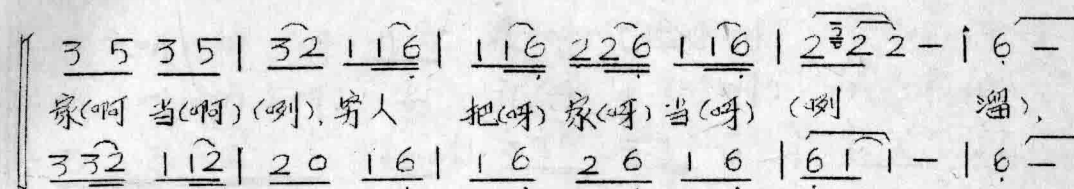 3 5 3 5 | 3 2 1 1 6 | 1 1 6 2 2 6 1 1 6 | 2 2 2 - | 6 -
家(啊 当(啊) (咧), 穷人 把(呀) 家(呀) 当(呀) (咧 溜),
3 3 2 1 1 2 | 2 0 1 6 | 1 6 2 6 1 6 | 6 1 1 - | 6 -